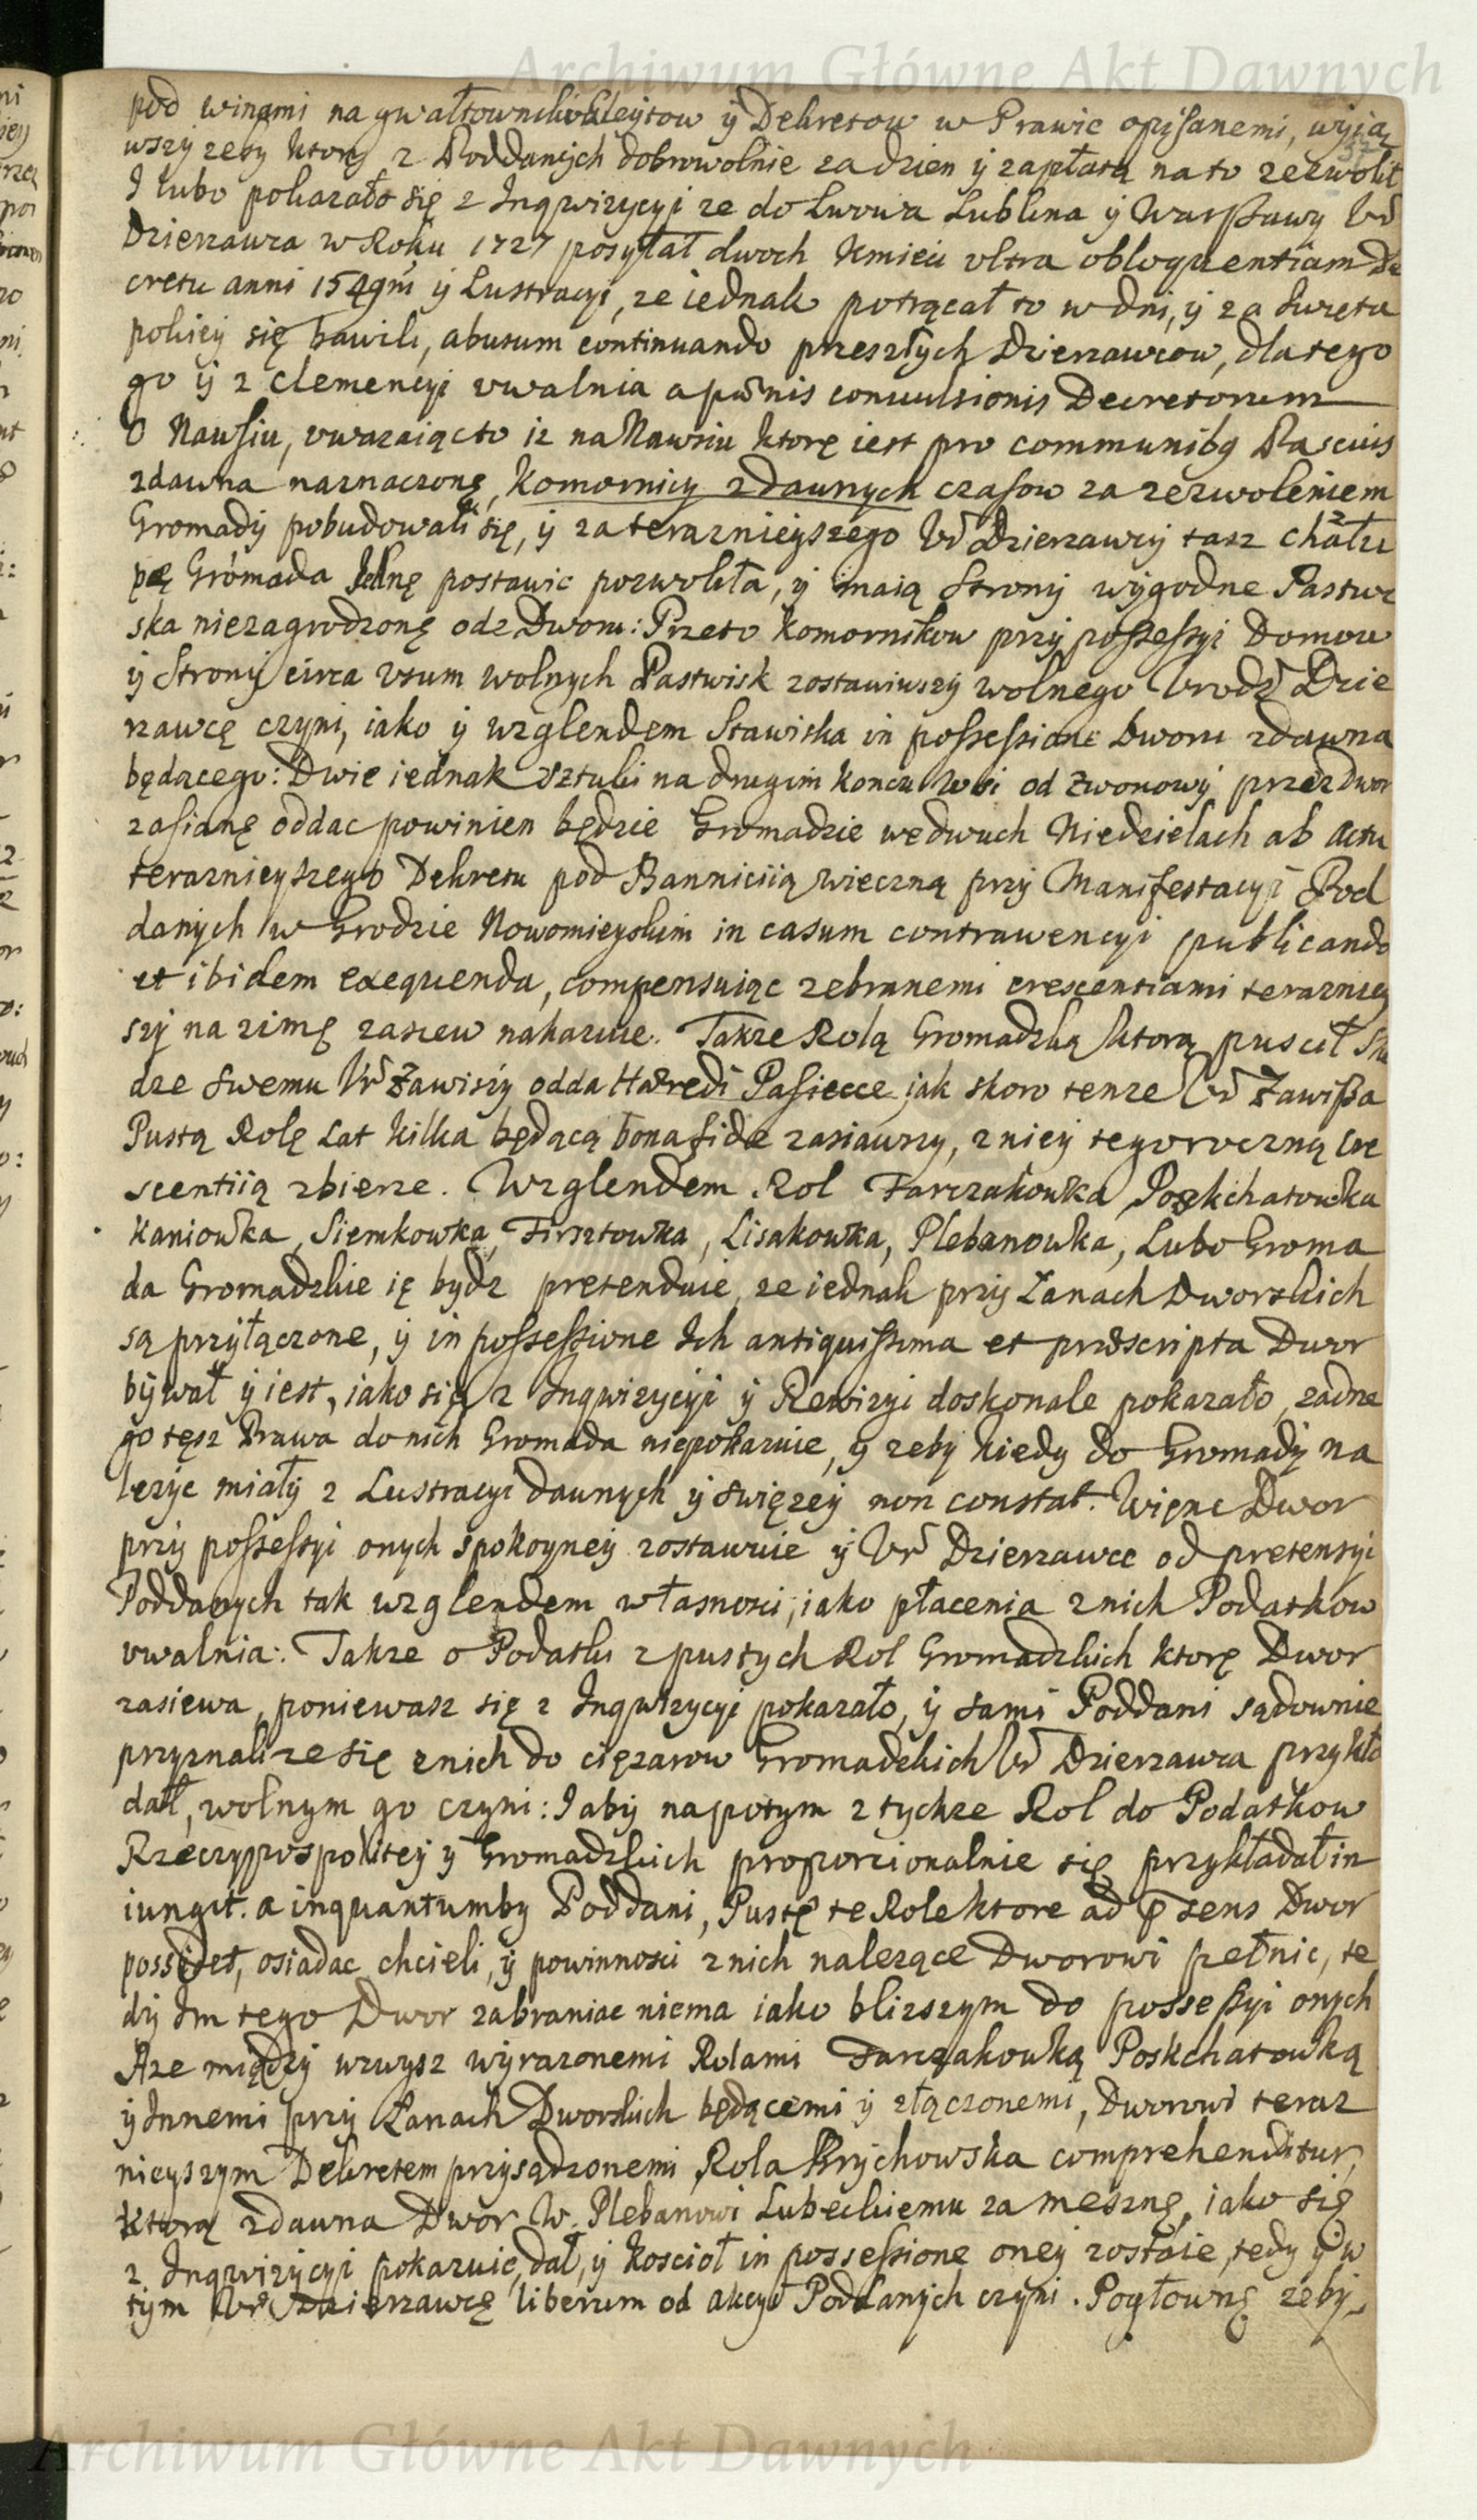 Archiwum Główne Akt Dawnych
pod winami na gwałtownikow Gleytow ÿ Dekretow w Prawie opisanemi, wyią
wszÿ zeby ktory z Poddanych dobrowolnie za dzien ÿ zapłatą na to zezwolił
I lubo pokazało się z Inqwizycyi ze do Lwowa Lublina ÿ Warszawy Ur
Dzierzawca w Roku 1727 posyłał dwoch Kmieci ultra obloquentiam De
cretu anni 1549 ÿ Lustracyi, ze iednak potrącał to w dni, ÿ za swięta
pokiey się bawili, abusum continuando przeszłych Dzierzawcow, dla tego
go ÿ z clemencyi uwalnia a pœnis convulsionis Decretorum
O Nawsiu, uwazaiąc to iz na Nawsiu ktorę iest pro communibus Pascuis
zdawna naznaczonę, Komornicy zdawnych czasow za zezwoleniem
Gromady pobudowali się, ÿ za teraznieyszego Ur Dzierzawcy tasz chału
pę Gromada Jednę postawic pozwoliła, ÿ maią Strony wygodne Pastwi
ska niezagrodzonę ode Dworu: Przeto Komornikow przy possessyi Domow
ÿ Strony circa usum wolnych Pastwisk zostawiwszy wolnego Urodz Dzie
rzawcę czyni, iako ÿ wzglendem Stawiska in possessione Dworu zdawna
będącego: Dwie iednak sztuki na drugim koncu Wsi od Zwonowy przez Dwor
zasianę oddac powinien będzie Gromadzie we dwuch Niedzielach ab actu
teraznieyszego Dekretu pod Banniciią wieczną przy Manifestacyi Pod
danych w Grodzie Nowomieyskim in casum contrawencyi publicanda
et ibidem exequenda, compensuiąc zebranemi crescentiami terazniey
szy na zimę zasiew nakazuie. Takze Rolą Gromadzką ktorą puscił Słu
dze swemu Ur Zawiszy odda Hæredi Pasiecce jak skoro tenze Ur Zawisza
Pustą Rolę Lat kilka będącą bona fide zasiawszy, z niey tegoroczną Cre
scentiią zbierze. Wzglendem Rol Farczakowka Poskchatowka
Kaniowka, Siemkowka, Firsztowka, Lisakowka, Plebanowka, Lubo Groma
da Gromadzkie ię bydz pretenduie, ze iednak przy Łanach Dworskich
są przyłączone, ÿ in possessione Ich antiquissima et præscripta Dwor
bywał ÿ iest, iako się z Inqwizycyi ÿ Rewizyi doskonale pokazało, zadne
go tęsz Prawa do nich Gromada niepokazuie, ÿ zeby kiedy do Gromady na
lezyc miały z Lustracyi dawnych ÿ swięzey non constat. Więnc Dwor
przy possessyi onych spokoyney zostawuie ÿ Ur Dzierzawce od pretensyi
Poddanych tak wzglendem własnosci, iako płacenia z nich Podatkow
uwalnia: Takze o Podatki z pustych Rol Gromadzkich ktorę Dwor
zasiewa, poniewasz się z Inqwizycyi pokazało, ÿ sami Poddani sądownie
przyznali ze się z nich do cięzarow Gromadzkich Ur Dzierzawca przykła
dał, wolnym go czyni: I aby napotym z tychze Rol do Podatkow
Rzeczypospolitey ÿ Gromadzkich proporcionalnie się przykładał in
iungit. a inquantumby Poddani, Pustę te Role ktore ad præsens Dwor
possidet, osiadac chcieli, ÿ powinnosci z nich nalezące Dworowi pełnic, te
dy Im tego Dwor zabraniac niema iako blizszym do possessyi onych
Aze między wzwysz wyrazonemi Rolami Farczakowką Poskchatowką
ÿ Innemi przy Łanach Dworskich będącemi ÿ złączonemi, Dworowi teraz
nieyszym Dekretem przysądzonemi, Rola Krychowska comprehenditur,
ktorą zdawna Dwor W. Plebanowi Lubeckiemu za mesznę, iako się
z Inqwizycyi pokazuie, dał, ÿ Koscioł in possessione oney zostaie, tedy ÿ w
tym Ur Dzierzawcę liberum od akcyi Poddanych czyni. Pogłownę zeby
Archiwum Główne Akt Dawnych